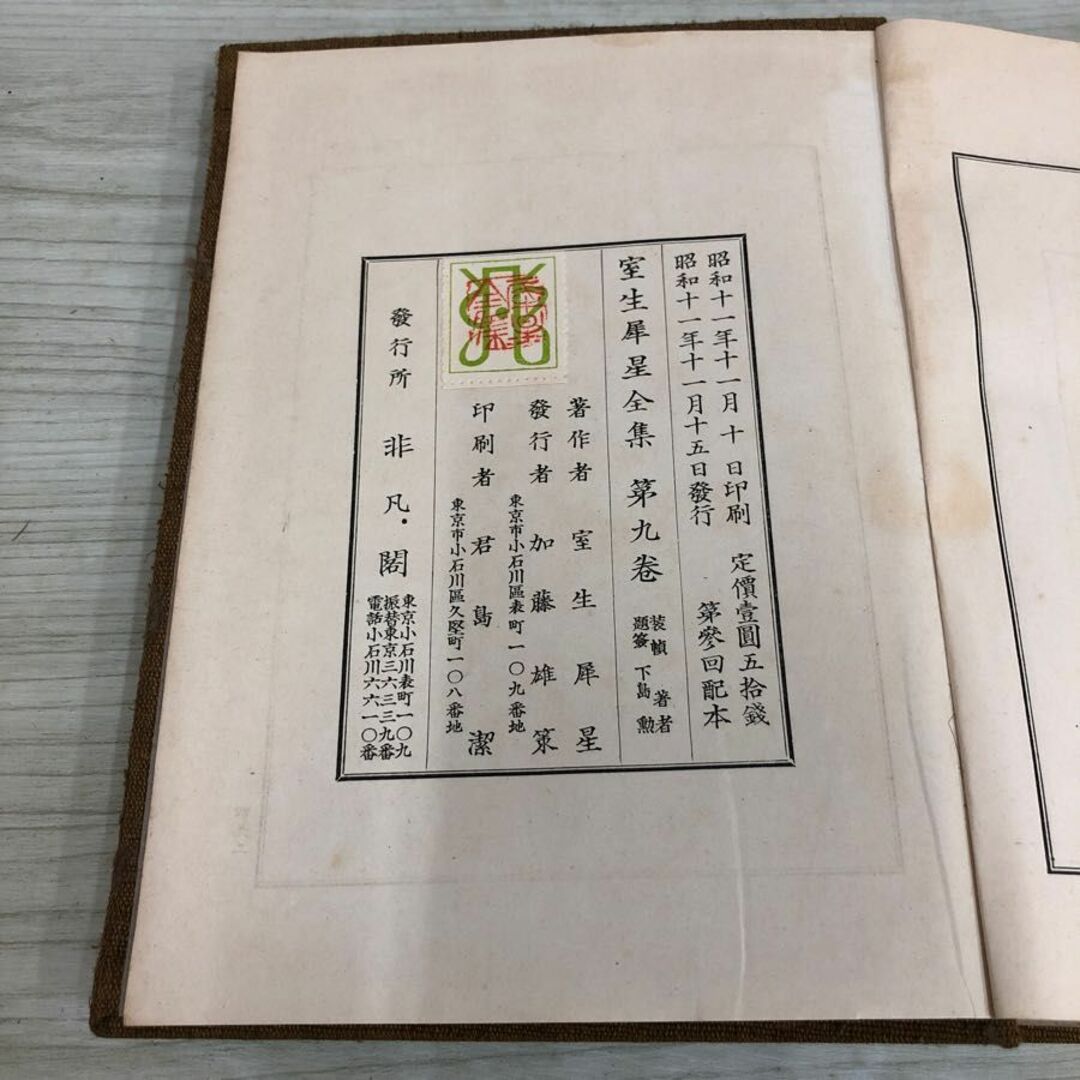 昭和十一年十一月十日印刷 定價壹圓五拾錢
昭和十一年十一月十五日發行 第參回配本
室生犀星全集 第九卷
装幀 著者
題簽 下島勲
著作者 室生犀星
發行者 加藤雄策
東京市小石川區表町一〇九番地
印刷者 君島潔
東京市小石川區久堅町一〇八番地
發行所 非凡閣
東京小石川表町一〇九
振替東京三六三三九番
電話小石川六六一〇番